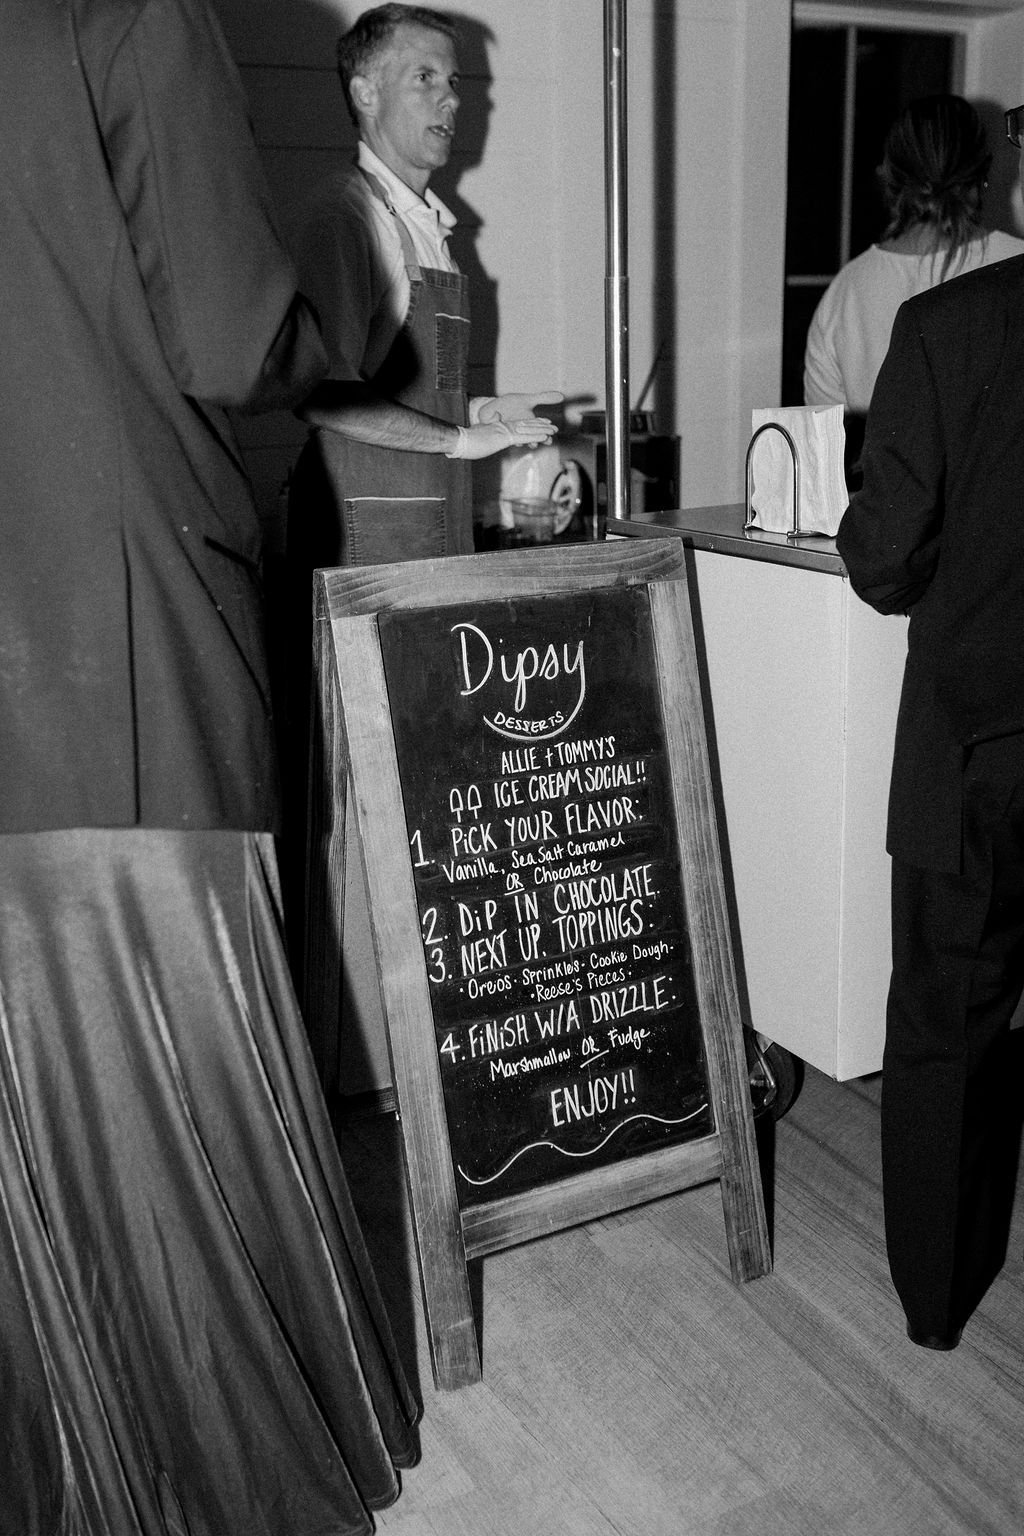 Dipsy
DESSERTS
ALLIE + TOMMY'S
ICE CREAM SOCIAL!!
1. PiCK YOUR FLAVOR:
Vanilla, Sea Salt Caramel
OR Chocolate
2. DiP IN CHOCOLATE.
3. NEXT UP, TOPPINGS:
· Oreos · Sprinkles · Cookie Dough ·
· Reese's Pieces ·
4. FiNiSH W/A DRIZZLE:
Marshmallow OR Fudge
ENJOY!!